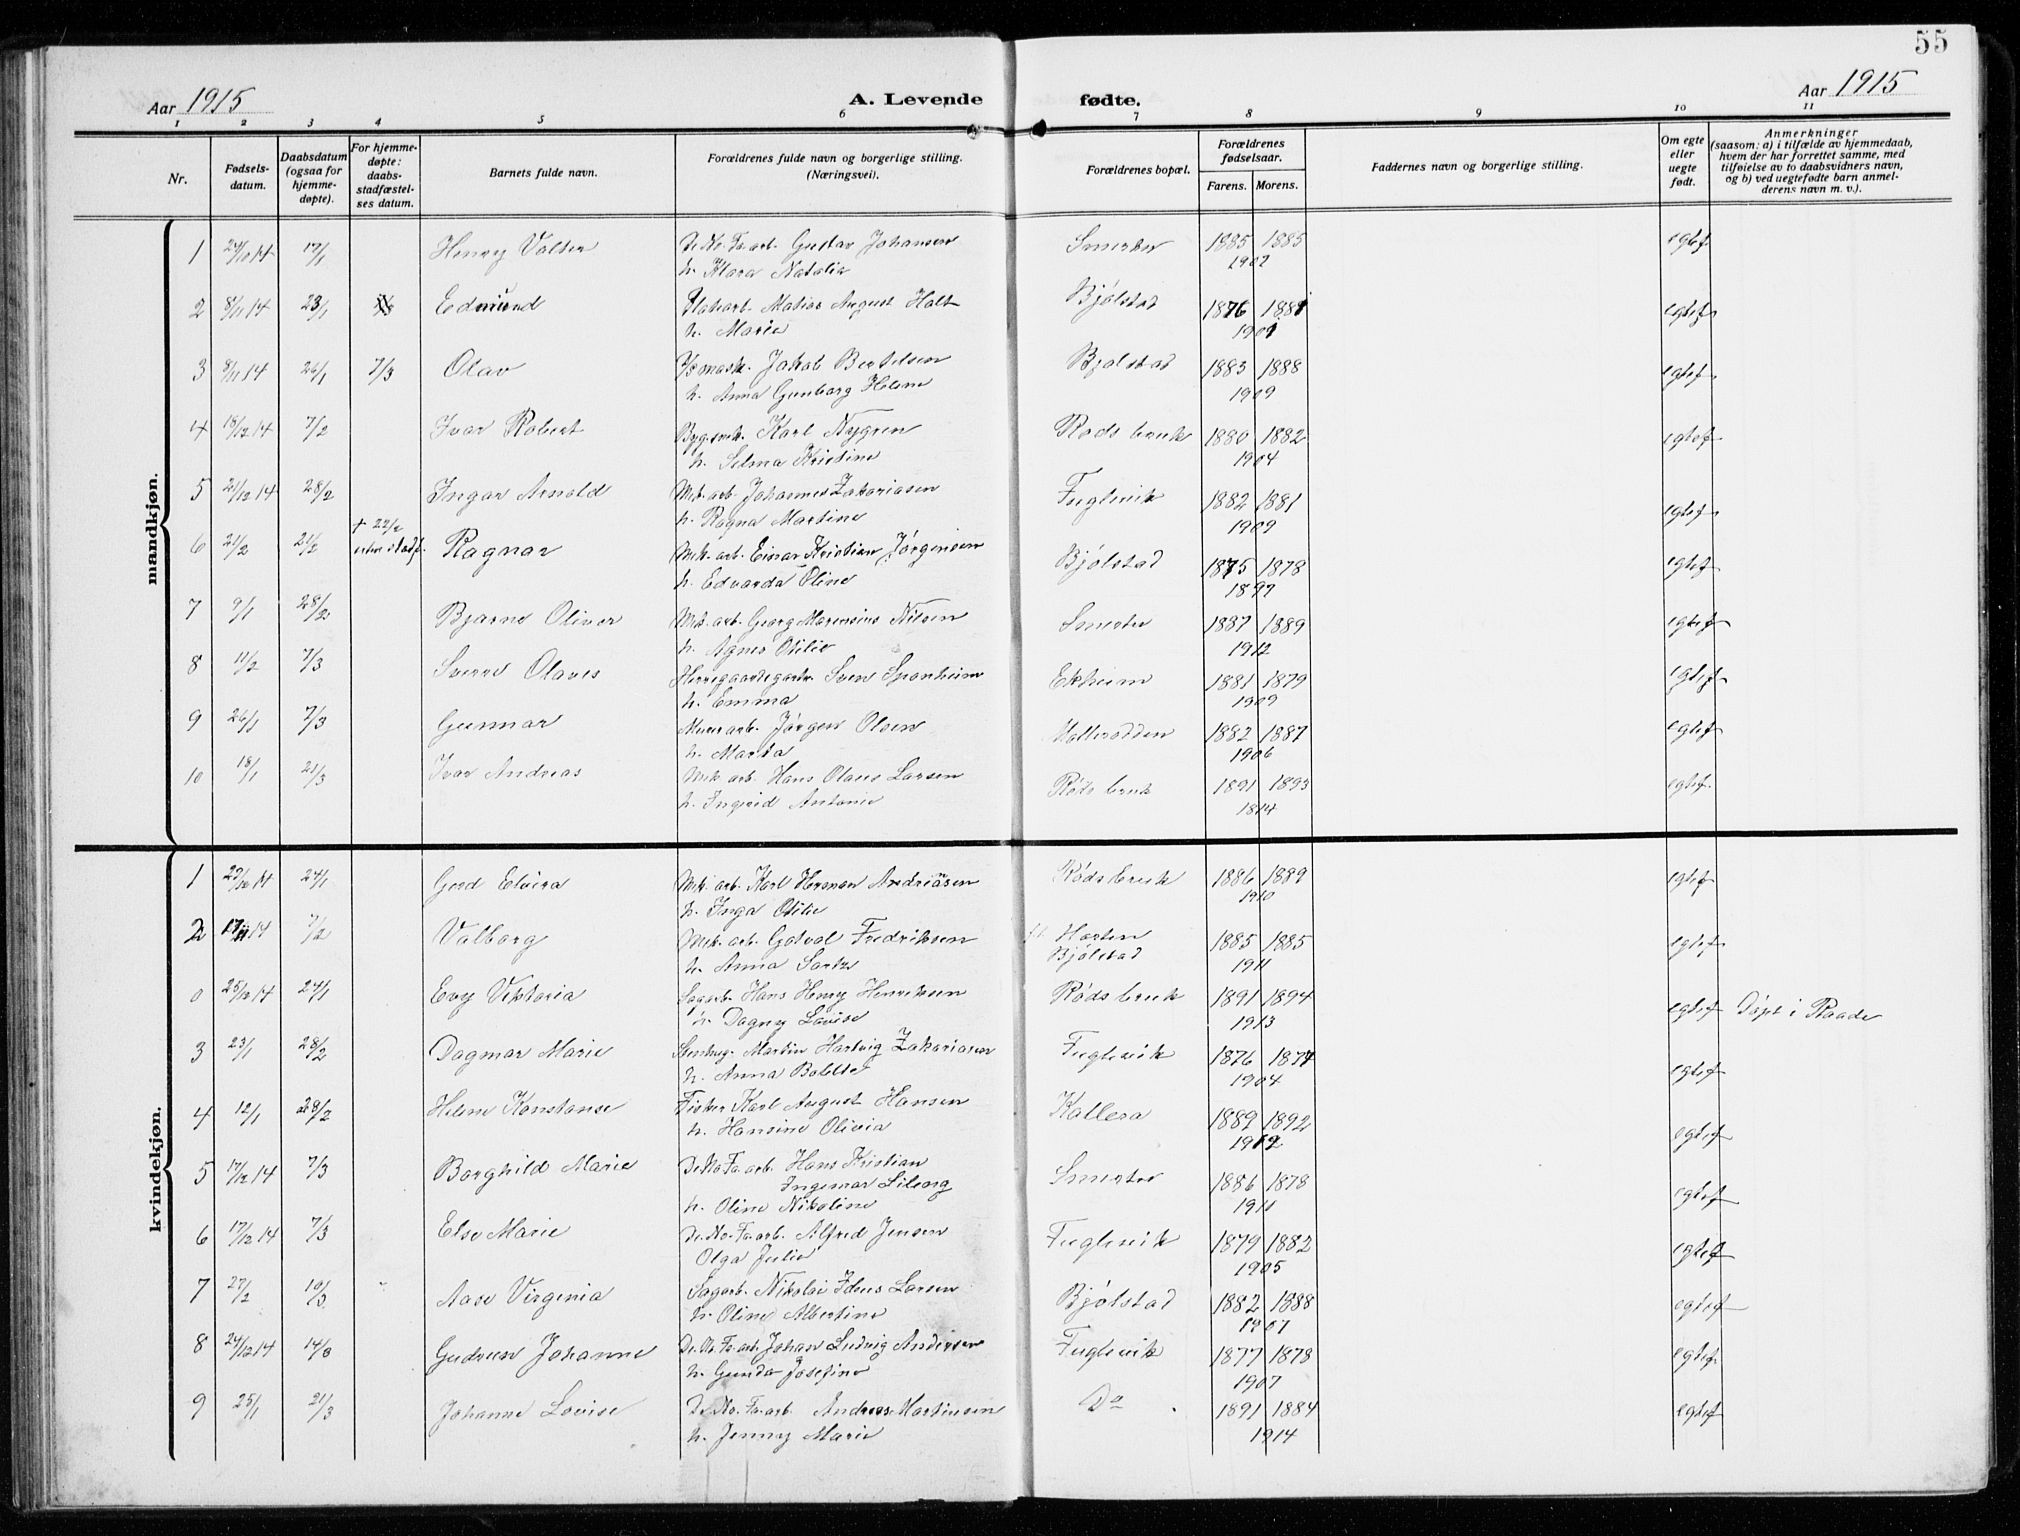 55
Aar 1915
A. Levende fødte.
Aar 1915
1 2 3 4 5 6 7 8 9 10 11
Nr.
Fødsels-
datum.
Daabsdatum
(ogsaa for
hjemme-
døpte).
For hjemme-
døpte:
daabs-
stadfæstel-
ses datum.
Barnets fulde navn.
Forældrenes fulde navn og borgerlige stilling.
(Næringsvei).
Forældrenes bopæl.
Forældrenes
fødselsaar.
Farens. Morens.
Faddernes navn og borgerlige stilling.
Om egte
eller
uegte
født.
Anmerkninger
(saasom: a) i tilfælde av hjemmedaab,
hvem der har forrettet samme, med
tilføielse av to daabsvidners navn,
og b) ved uegtefødte barn anmel-
derens navn m. v.).
mandkjøn.
1 24/10 14 17/1 Henry Valter De No. Fa. arb. Gustav Johansen Smerter 1885 1885 egtef
h. Klara Natalie 1907
2 8/11 14 23/1 Edmund Mathias August Holt Bjølstad 1876 1881 egtef
h. Marie 1901
3 8/11 14 26/1 7/3 Olav Jakob Bertelsen Bjølstad 1883 1888 egtef
h. Anna Gunborg Helene 1909
4 18/12 14 7/2 Ivar Robert Karl Nygren Røds bruk 1880 1882 egtef
h. Selma Kristine 1904
5 21/12 14 28/2 Ingar Arnold Mek. arb. Johannes Zakariasen Fuglevik 1882 1881 egtef
h. Ragna Martine 1909
6 21/2 21/2 + 22/2 uten stadf. Ragnar Mek. arb. Einar Kristian Jørgensen Bjølstad 1875 1878 egtef
h. Edvarda Oline 1899
7 9/1 28/2 Bjarne Oliver Mek. arb. Georg Marensius Nilsen Smerter 1887 1889 egtef
h. Agnes Otilie 1912
8 11/2 7/3 Sverre Olaves Herregaardsgartn. Sven Sponheim Ekheim 1881 1879 egtef
h. Emma 1909
9 26/1 7/3 Gunnar Murerarb. Jørgen Olsen 1882 1887 egtef
h. Marta 1906
10 18/1 21/3 Ivar Andreas Mek arb. Hans Olaus Larsen Røds bruk 1891 1893 egtef
h. Ingrid Antonie 1814
kvindekjøn.
1 24/1 Gerd Elvira Mek. arb. Karl Herman Andreasen Røds bruk 1886 1889 egtef
h. Inga Otilie 1910
2 17/11 14 7/2 Valborg Mek. arb. Gotval Fredriksen Horten 1885 1885 egtef
h. Anna Bjølstad 1911
0 25/12 14 24/1 Evy Viktoria Sagarb. Hans Henry Henriksen Røds bruk 1891 1894 egtef Døpt i Raade
h. Dagny Lovise 1913
3 23/1 28/2 Dagmar Marie Stenhug. Martin Hartvig Zakariasen Fuglevik 1876 1877 egtef
h. Anna Bolette 1904
4 12/1 28/2 Helene Konstanse Fisker Karl August Hansen Kallera 1889 1892 egtef
h. Hansine Olivia 1912
5 17/12 14 7/3 Borghild Marie De No Fa. arb. Hans Kristian Smerter 1886 1878 egtef
Ingemar Lileng
h. Oline Nikoline 1911
6 17/12 14 7/3 Else Marie De. No. Fa. arb. Alfred Jensen Fuglevik 1879 1882 egtef
Olga Julie 1905
7 27/2 10/3 Aase Virginia Sagarb. Nikolai Ideus Larsen Bjølstad 1882 1888 egtef
h. Oline Albertine 1907
8 24/12 14 14/3 Gudrun Johanne De. No. Fa. arb. Johan Ludvig Andersen Fuglevik 1877 1878 egtef
h. Gunda Josefine 1907
9 25/1 21/3 Johanne Lovise De. No. Fa. arb. Andreas Martinsen Do 1891 1884 egtef
h. Jenny Marie 1914